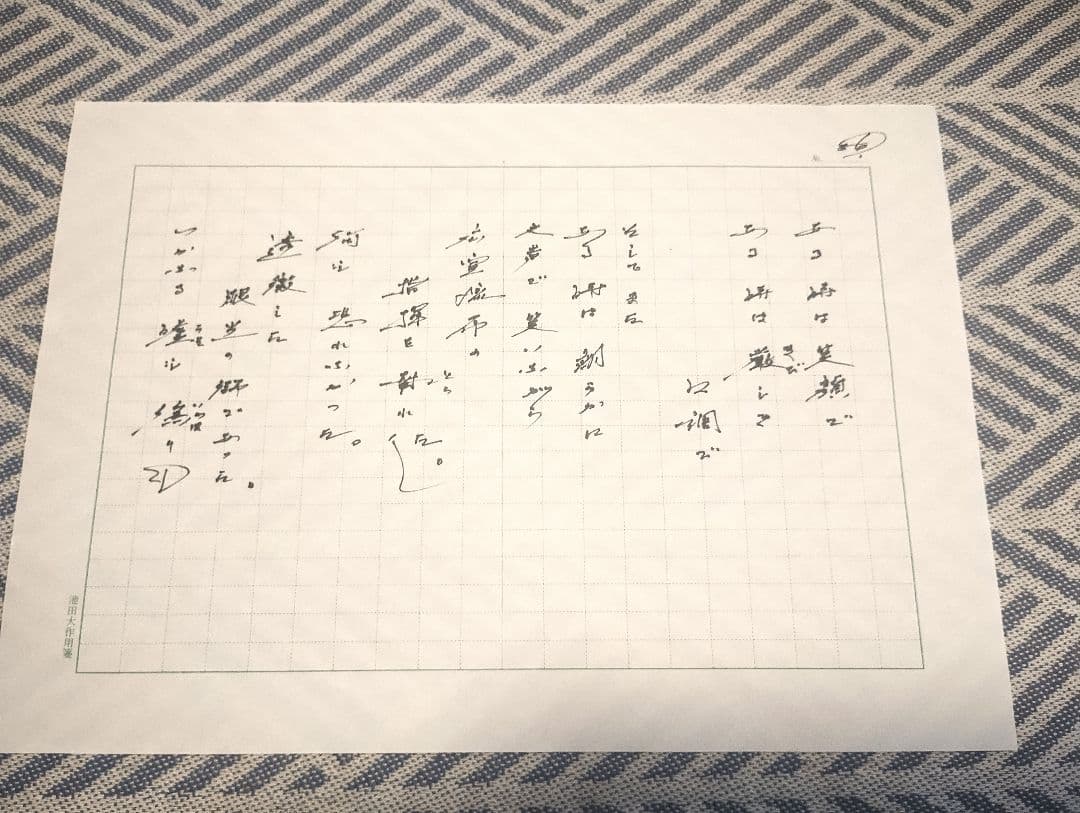 ある時は笑顔で
ある時は厳しき
口調で
そしてまた
ある時は朗らかに
大声で笑いながら
広宣流布の
指揮を執られた。
何も恐れなかった。
透徹した
眼光の師であった。
いかなる嘘も偽りも
池田大作用箋